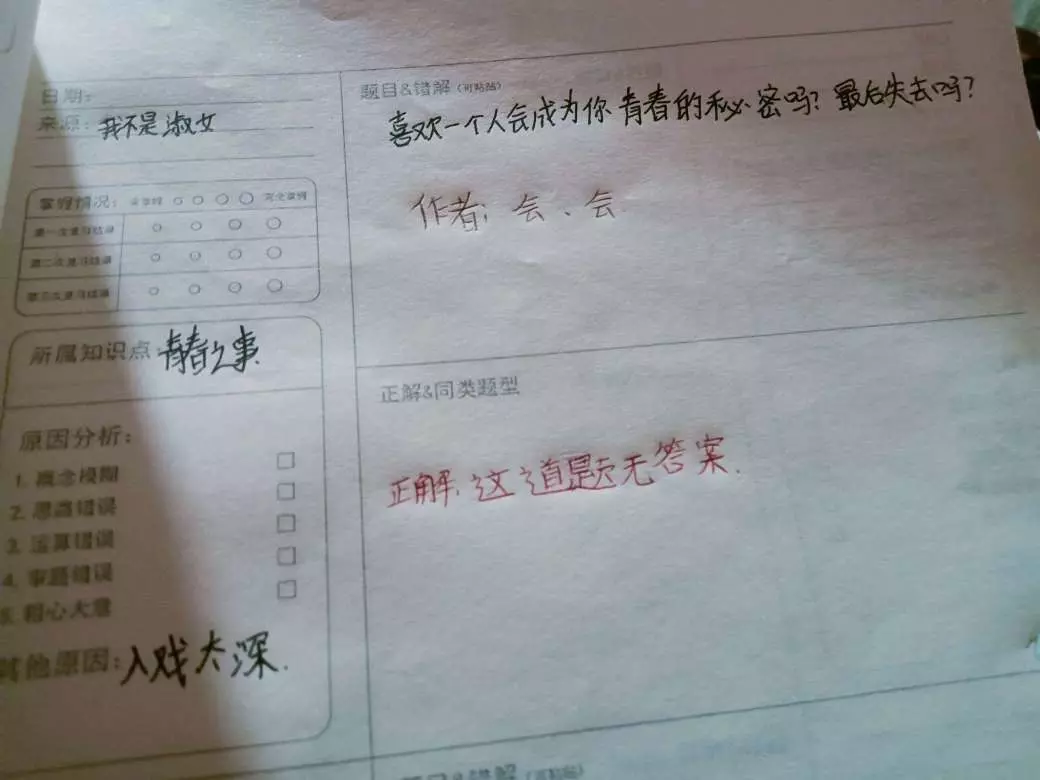 日期：
来源：我不是淑女
掌握情况：未掌握 完全掌握
第一次复习结果
第二次复习结果
第三次复习结果
所属知识点：青春之事
原因分析：
1. 概念模糊
2. 思路错误
3. 运算错误
4. 审题错误
5. 粗心大意
其他原因：入戏太深.
题目&错解（可粘贴）
喜欢一个人会成为你青春的秘密吗？最后失去吗？
作者：会、会
正解&同类题型
正解：这道题无答案.
题目&错解（可粘贴）